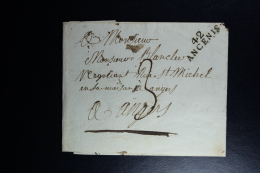 A Monsieur
42
ANCENIS
Monsieur Blancler
Negotiant Rue St Michel
en sa maison a angers
3
a angers